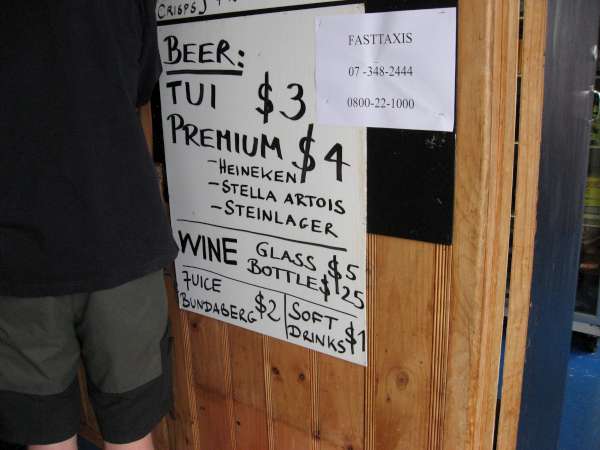 CRISPS
BEER:
TUI $3
PREMIUM $4
- HEINEKEN
- STELLA ARTOIS
- STEINLAGER
WINE GLASS $5
BOTTLE $25
JUICE
BUNDABERG $2
SOFT
DRINKS $1
FASTTAXIS
07 -348-2444
0800-22-1000